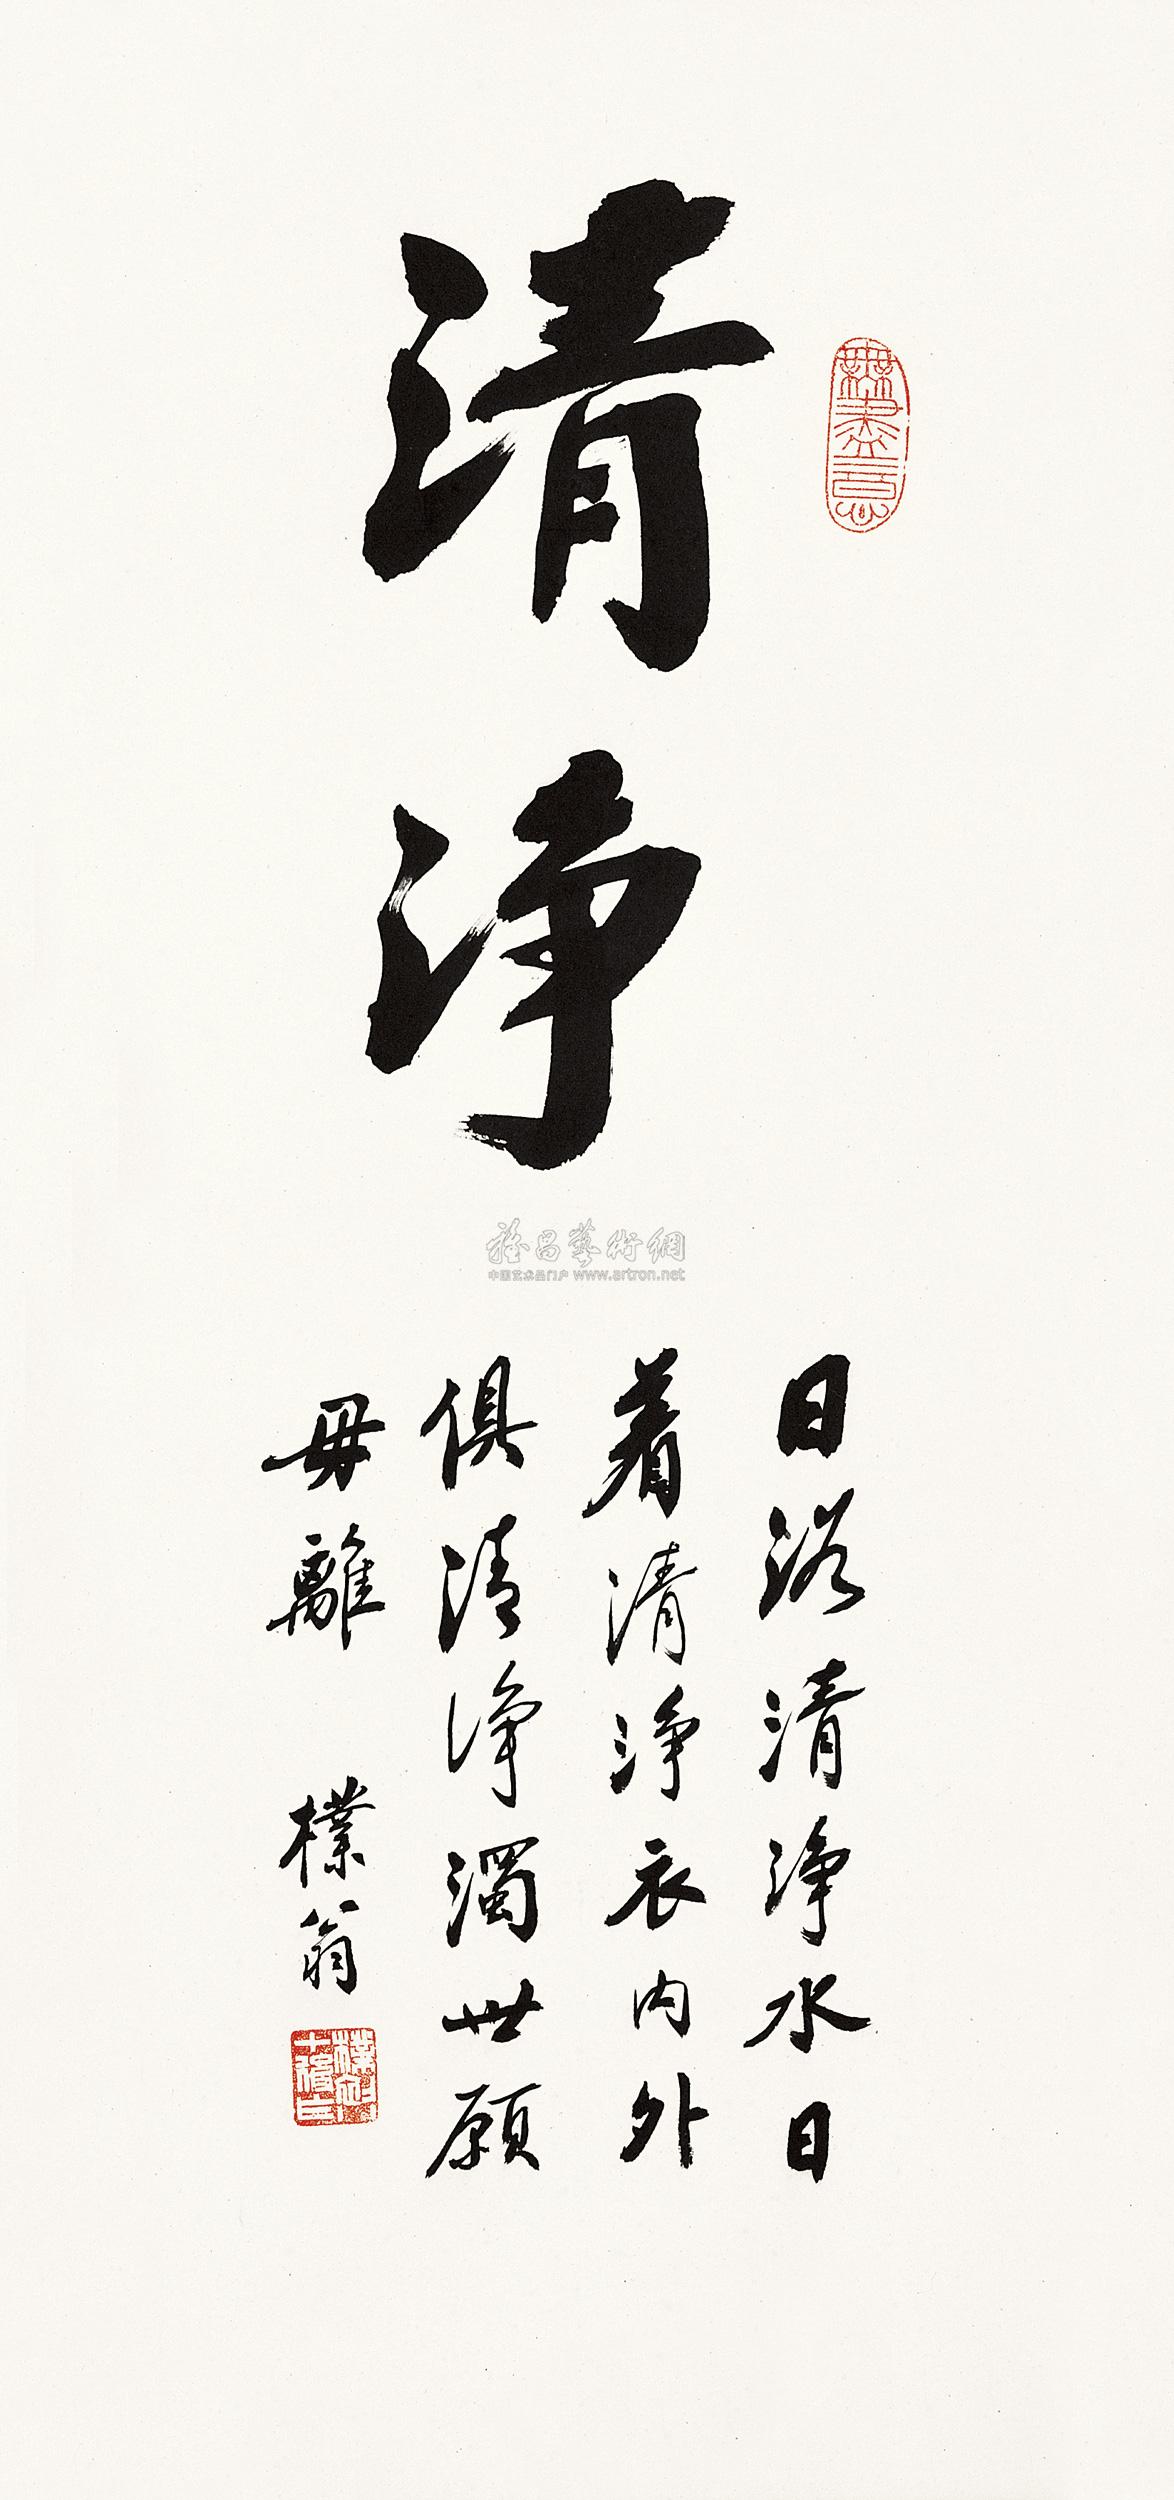 清淨
日浴清淨水日
着清淨衣内外
俱清淨濁世願
毋離
樸翁
雅昌藝術網
中国艺术品门户 www.artron.net